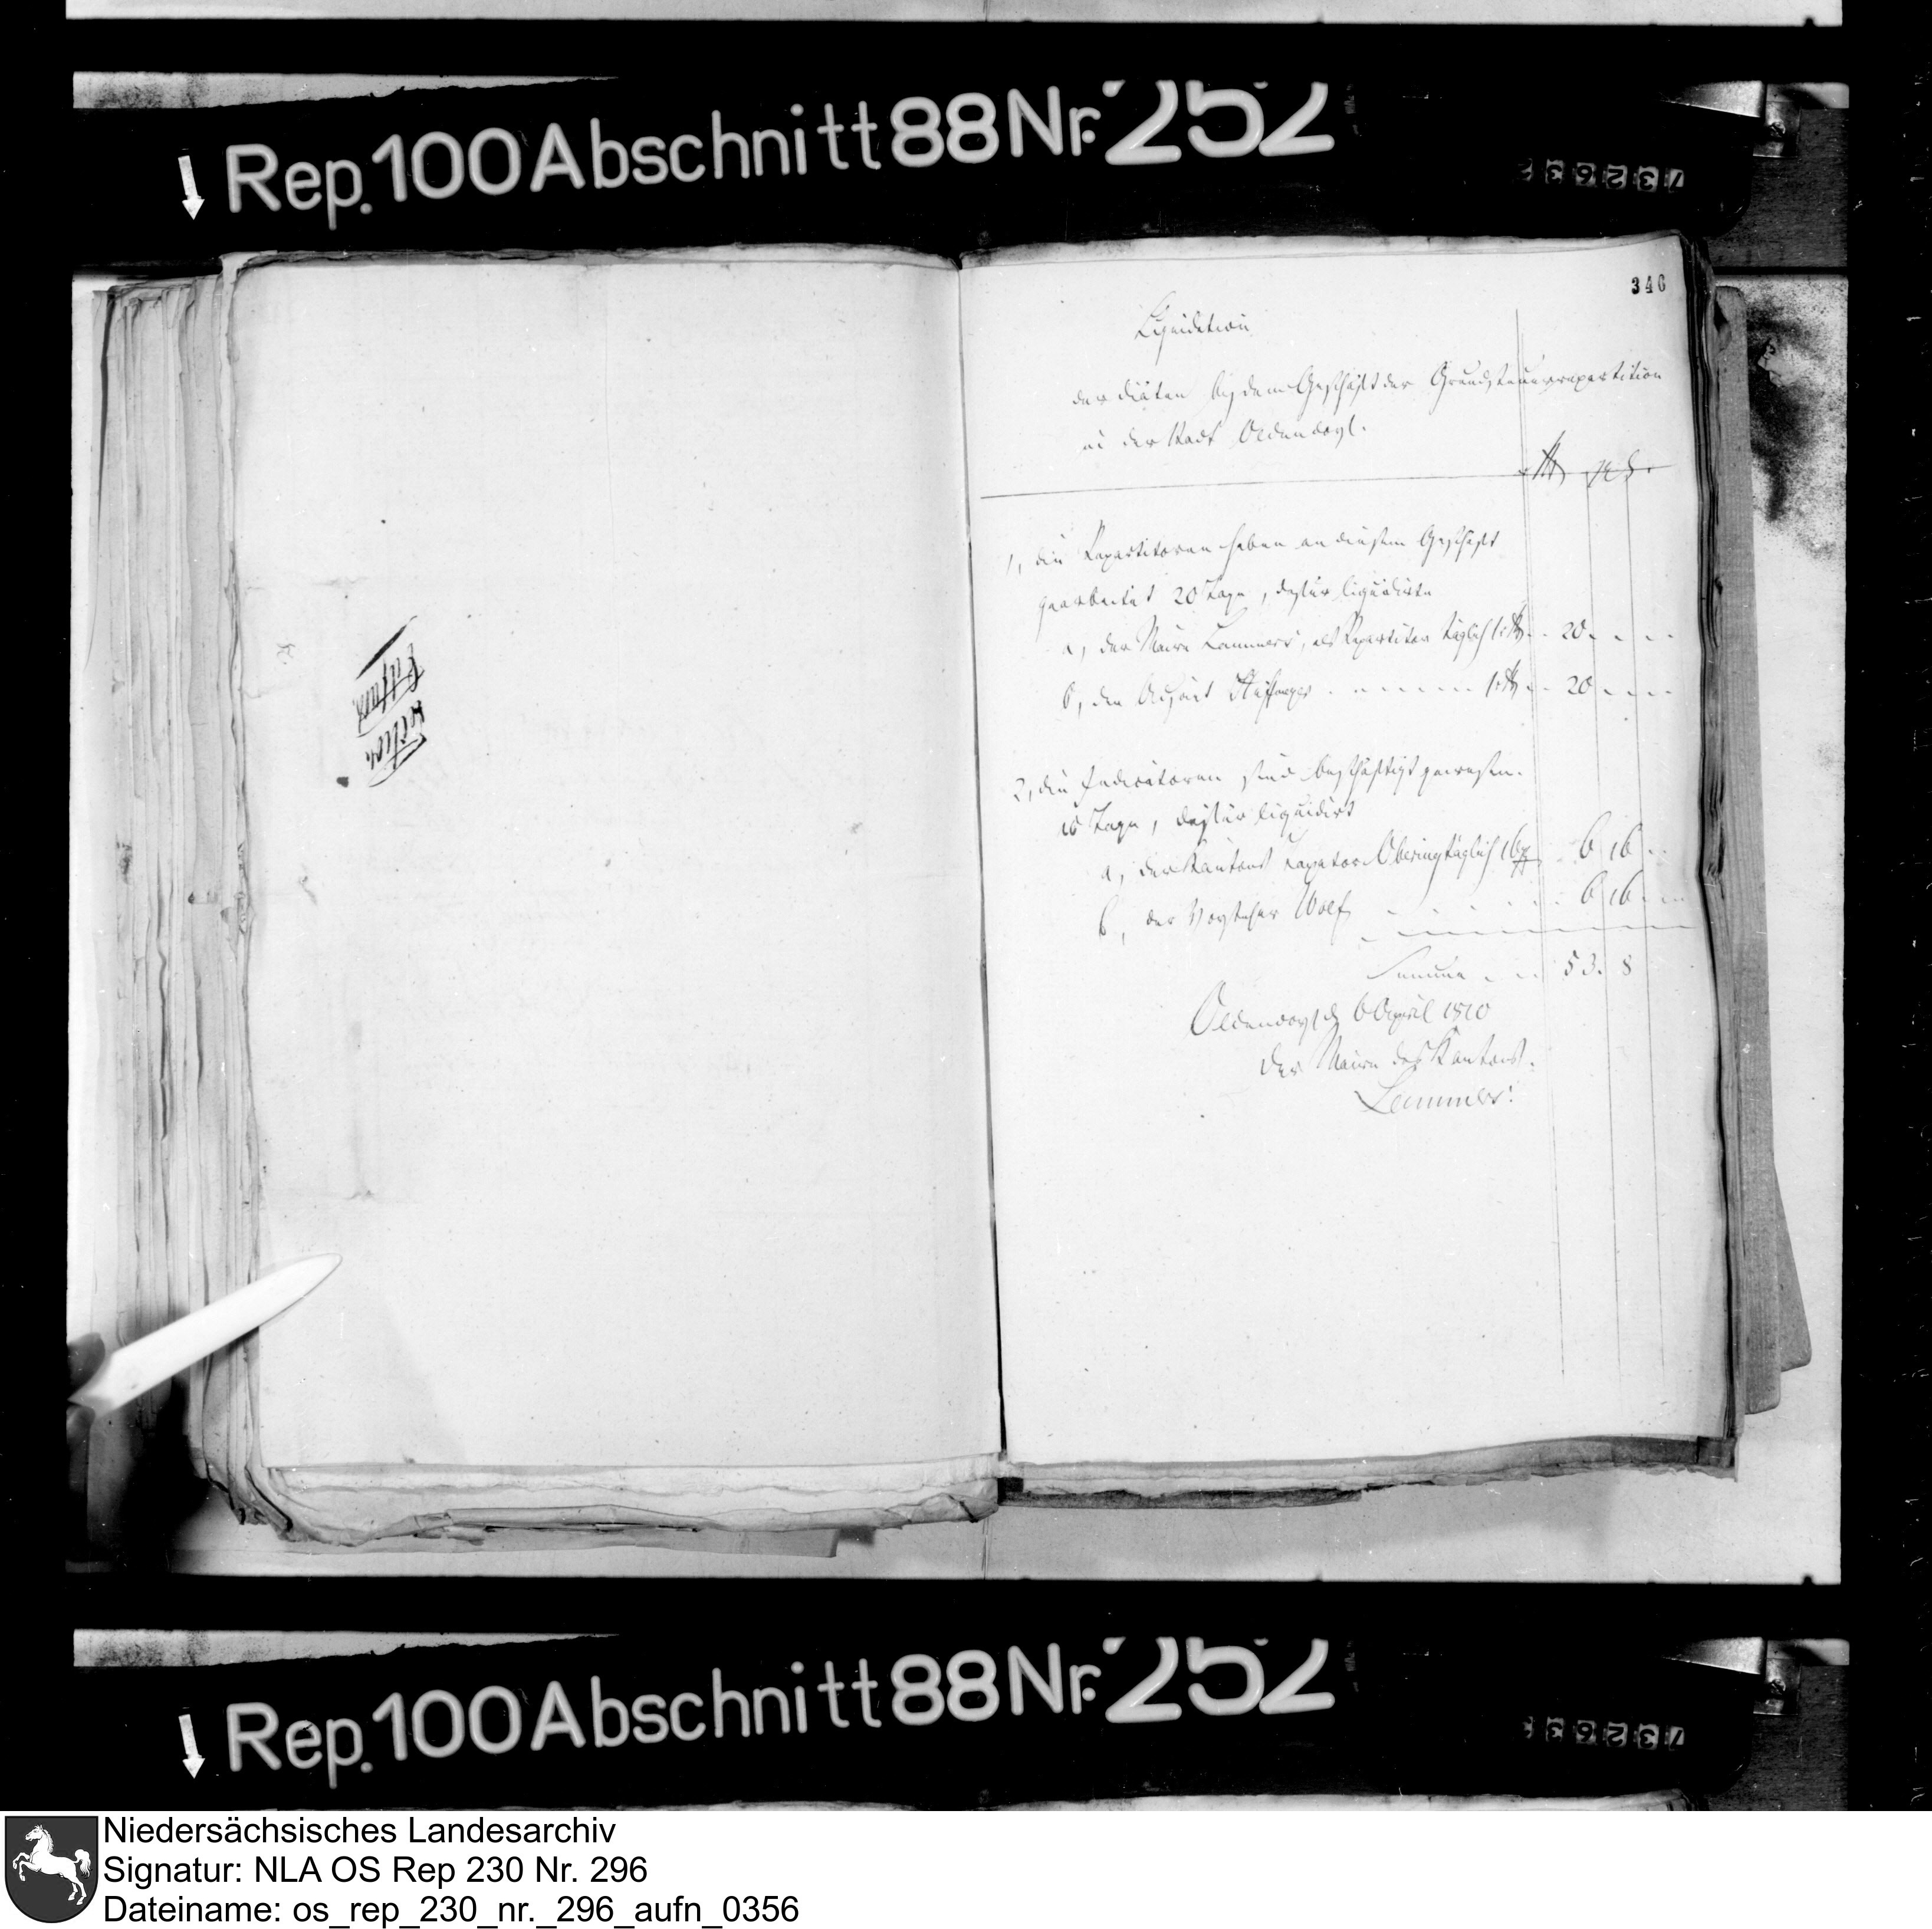 Rep. 100 Abschnitt 88 Nr. 252
346
Liquidation
der Diäten bey dem Geschäft der Grundsteuerrepartition
in der Stadt Oldendorf.
1, die Repartitoren haben an diesem Geschäft
gearbeitet 20 Tage, dafür liquidirt
a, der Maire Lammers, als Repartitor täglich 1 rthl 20
b, der Adjoint 1 rthl 20
2, die Indicatoren sind beschäftigt gewesen
10 Tage, dafür liquidirt
a, der Kantons täglich 16 6 16
b, der Vorsteher Wolf 6 16
Summa 53. 8
Oldendorf d 6 April 1810
Der Maire des Kantons.
Lammers.
Rep. 100 Abschnitt 88 Nr. 252
Niedersächsisches Landesarchiv
Signatur: NLA OS Rep 230 Nr. 296
Dateiname: os_rep_230_nr._296_aufn_0356